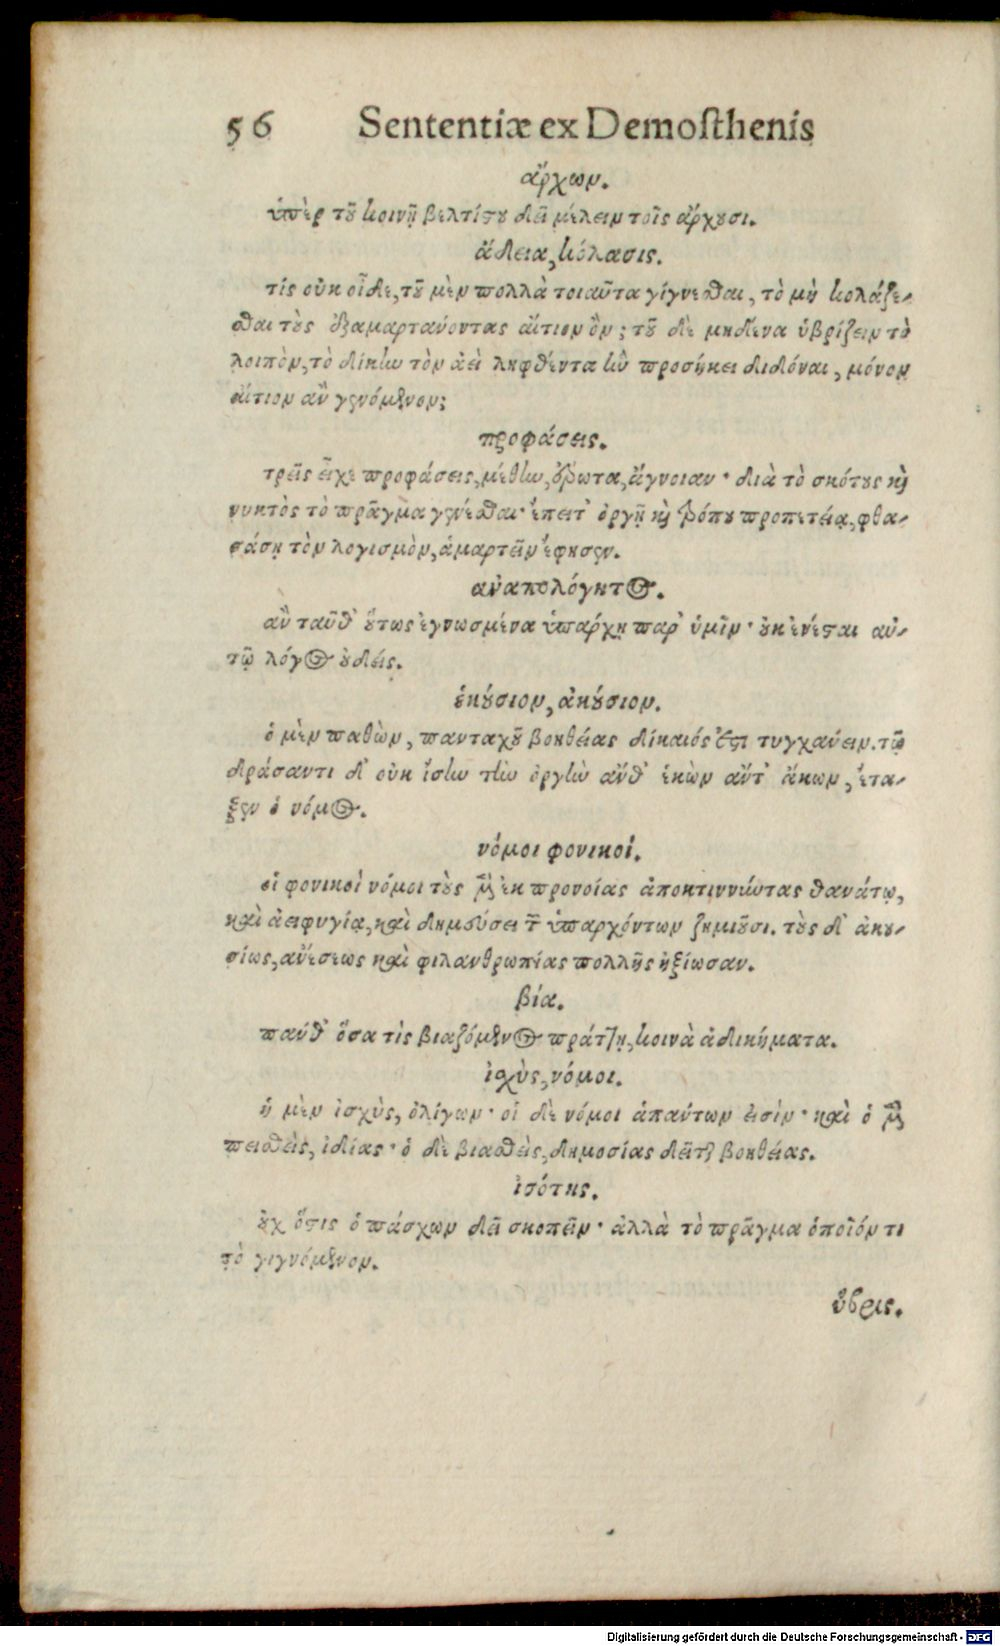 56 Sententiæ ex Demosthenis
ἄρχων.
ὑπὲρ τοῦ κοινῇ βελτίστου δεῖ μέλειν τοῖς ἄρχουσι.
ἄδεια, κόλασις.
τίς οὐκ οἶδε, τοῦ μὲν πολλὰ τοιαῦτα γίγνεσθαι, τὸ μὴ κολάζε-
σθαι τοὺς ἐξαμαρτάνοντας αἴτιον ὂν; τοῦ δὲ μηδένα ὑβρίζειν τὸ
λοιπὸν, τὸ δίκην τὸν ἀεὶ ληφθέντα ἣν προσήκει διδόναι, μόνον
αἴτιον ἂν γενόμενον;
προφάσεις.
τρεῖς εἶχε προφάσεις, μέθην, ἔρωτα, ἄγνοιαν· διὰ τὸ σκότους καὶ
νυκτὸς τὸ πρᾶγμα γενέσθαι· ἔπειτ' ὀργῇ καὶ τρόπου προπετείᾳ, φθα-
σάσῃ τὸν λογισμὸν, ἁμαρτεῖν ἔφησεν.
ἀναπολόγητος.
ἂν ταῦθ' οὕτως ἐγνωσμένα ὑπάρχῃ παρ' ὑμῖν· οὐκ ἐνέσται αὐ-
τῷ λόγος οὐδείς.
ἑκούσιον, ἀκούσιον.
ὁ μὲν παθὼν, πανταχοῦ βοηθείας δίκαιός ἐστι τυγχάνειν. τῷ
δράσαντι δ' οὐκ ἴσην τὴν ὀργὴν ἄνθ' ἑκὼν ἄντ' ἄκων, ἔτα-
ξεν ὁ νόμος.
νόμοι φονικοί.
οἱ φονικοὶ νόμοι τοὺς μὲν ἐκ προνοίας ἀποκτιννύντας θανάτῳ,
καὶ ἀειφυγίᾳ, καὶ δημεύσει τῶν ὑπαρχόντων ζημιοῦσι. τοὺς δ' ἀκου-
σίως, αἰδέσεως καὶ φιλανθρωπίας πολλῆς ἠξίωσαν.
βία.
πάνθ' ὅσα τὶς βιαζόμενος πράττῃ, κοινὰ ἀδικήματα.
ἰσχὺς, νόμοι.
ἡ μὲν ἰσχὺς, ὀλίγων· οἱ δὲ νόμοι ἁπάντων εἰσίν· καὶ ὁ μὲν
πεισθεὶς, ἰδίας· ὁ δὲ βιασθεὶς, δημοσίας δεῖται βοηθείας.
ἰσότης.
οὐχ ὅστις ὁ πάσχων δεῖ σκοπεῖν· ἀλλὰ τὸ πρᾶγμα ὁποῖόν τι
τὸ γιγνόμενον.
ὕβρις.
Digitalisierung gefördert durch die Deutsche Forschungsgemeinschaft - DFG